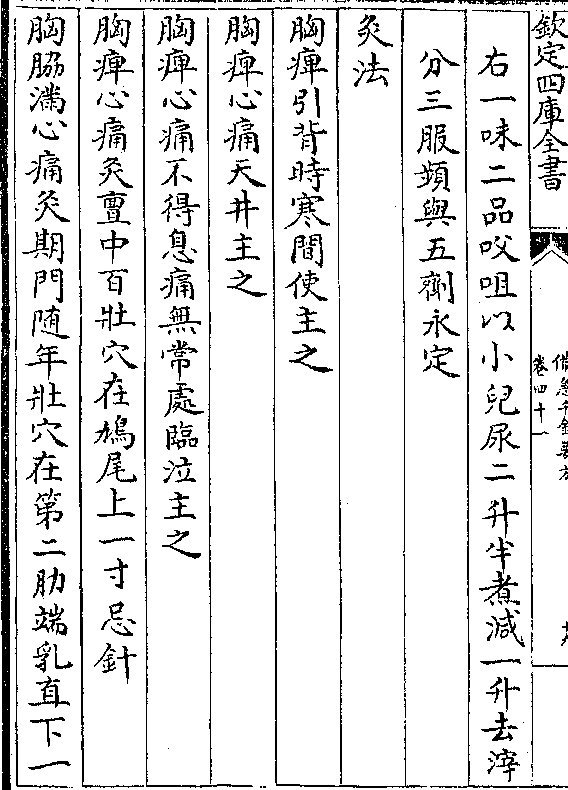 欽定四庫全書
備急千金要方
卷四十一
右一味二品㕮咀以小兒尿二升半煮減一升去滓
分三服頻與五劑永定
灸法
胸痺引背時寒間使主之
胸痺心痛天井主之
胸痺心痛不得息痛無常處臨泣主之
胸痺心痛灸亶中百壯穴在鳩尾上一寸忌針
胸脇滿心痛灸期門随年壯穴在第二肋端乳直下一